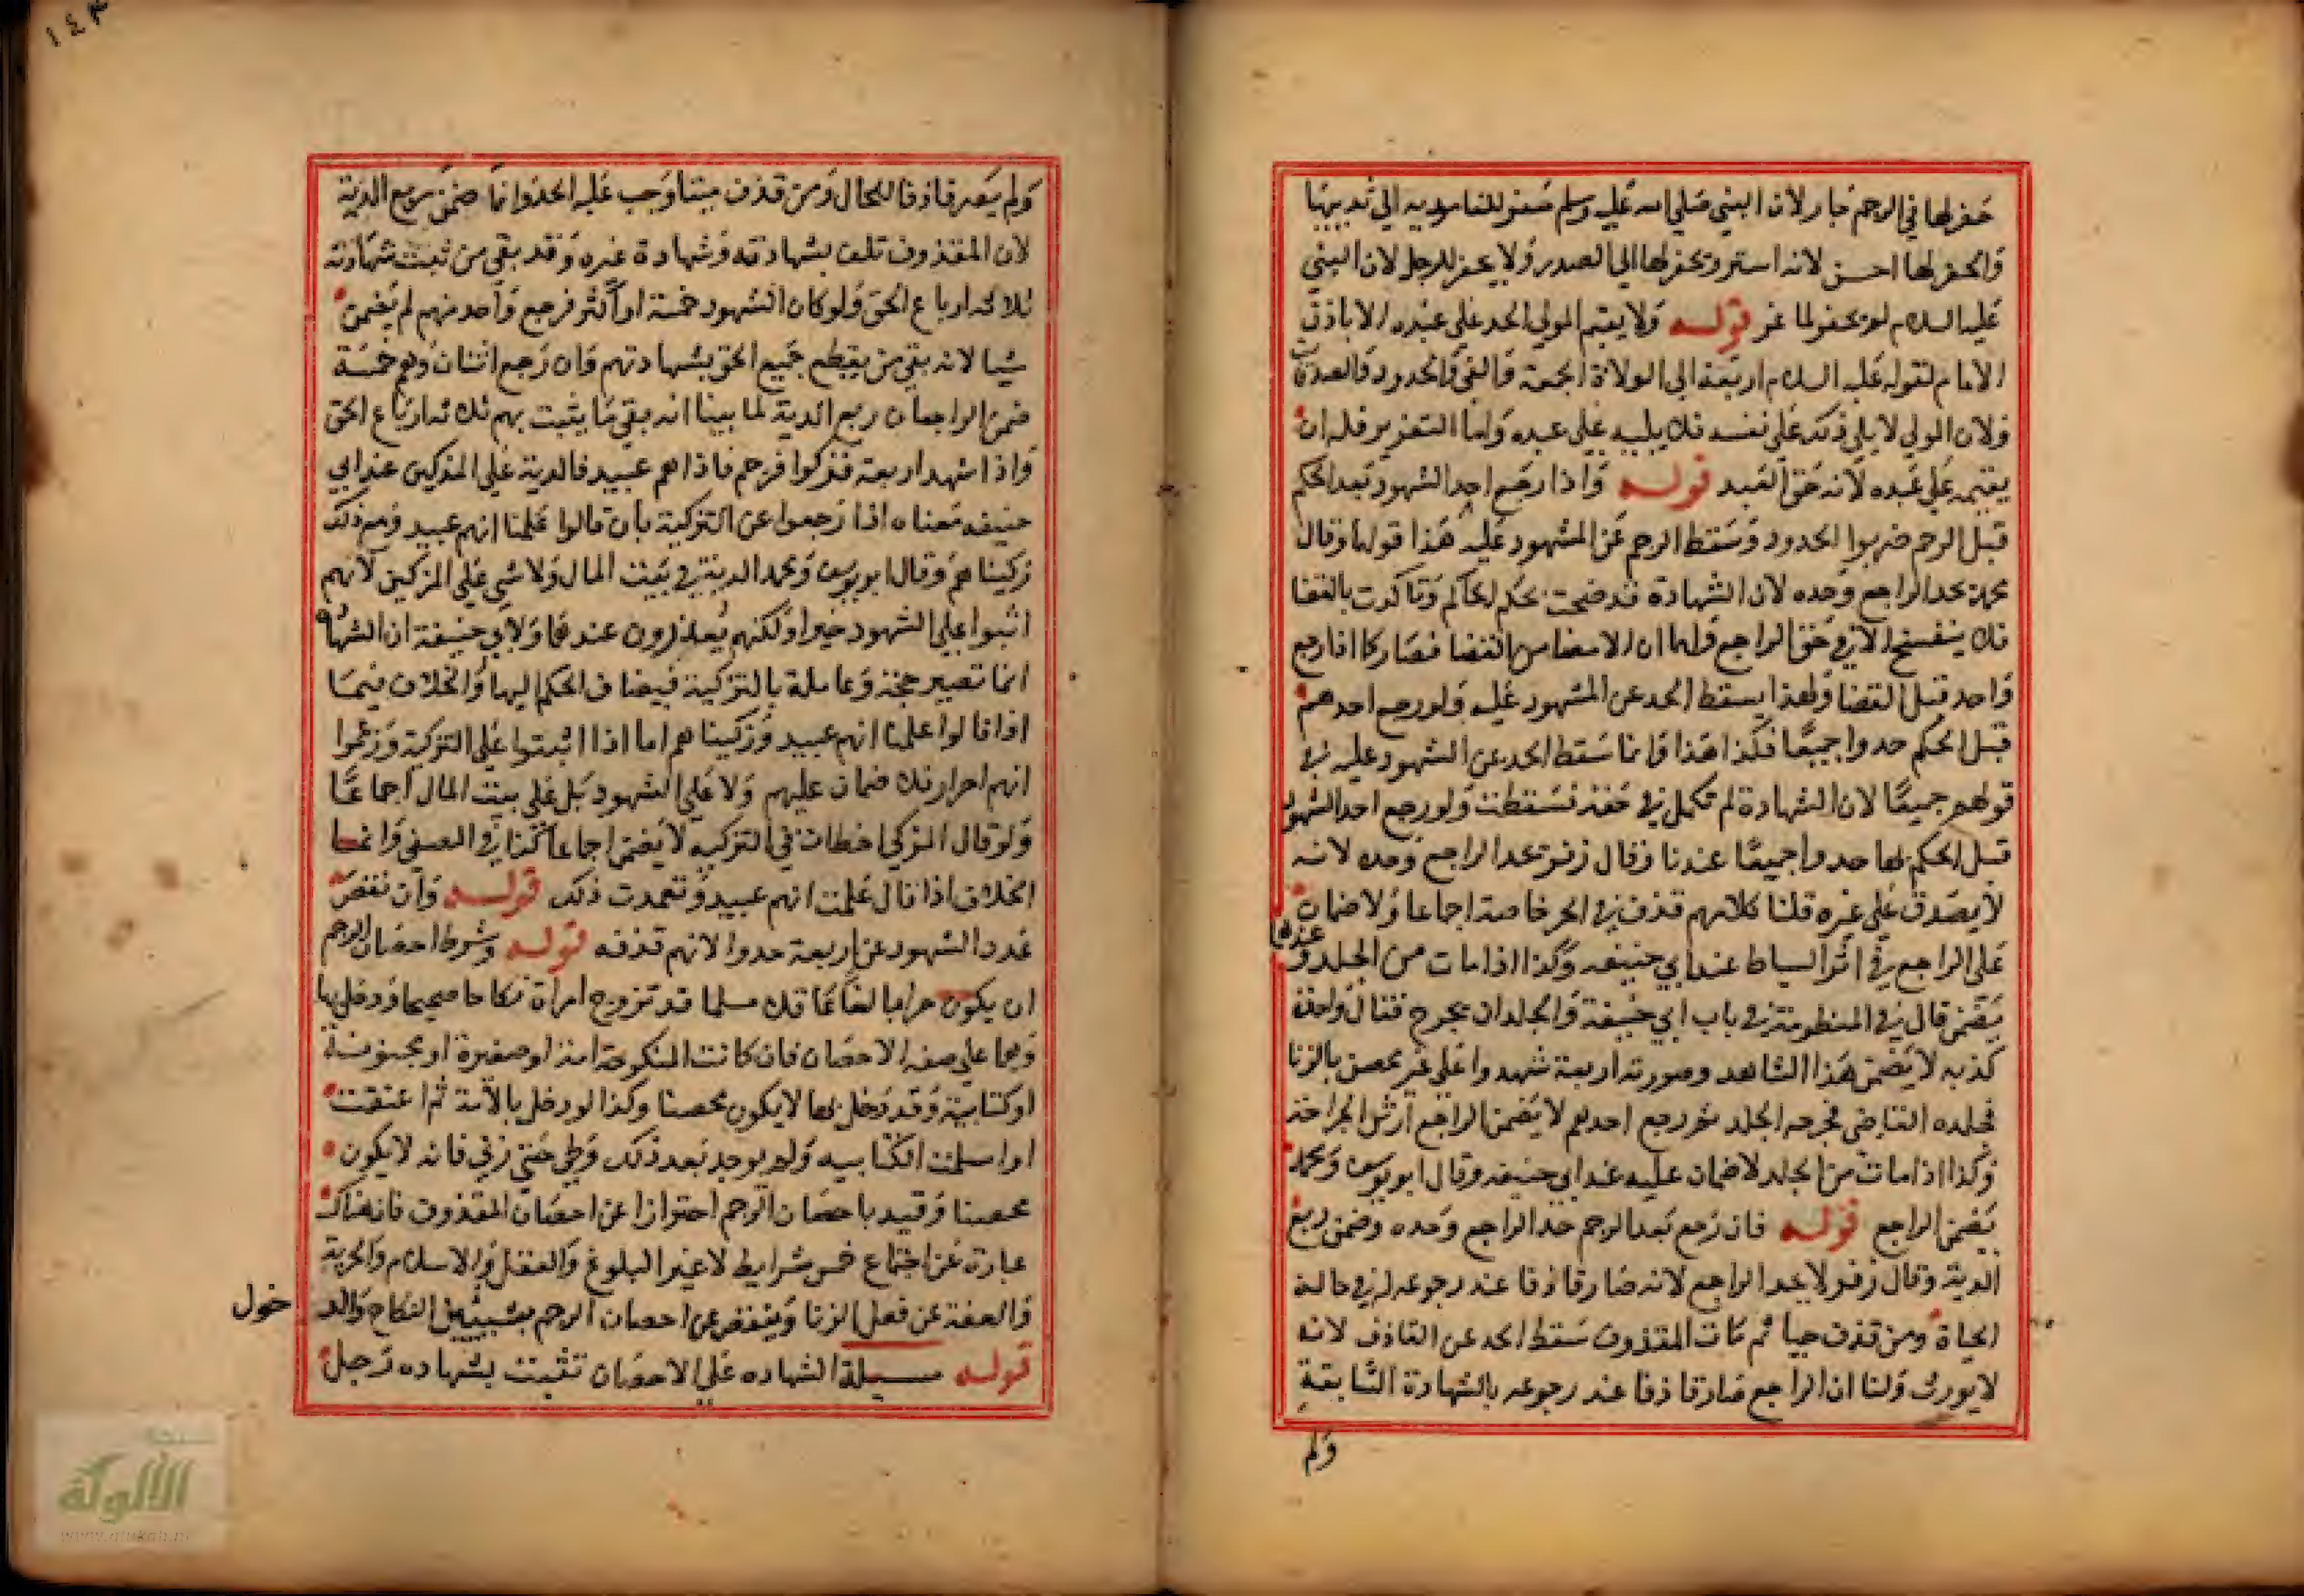 حفر لها في الرجم جاز لان النبي صلي الله عليه وسلم حفر للغامدية الي ثدييها
والحفر لها احسن لانه استر ويحفر لها الي الصدر ولا يحفر للرجل لان النبي
عليه السلام لم يحفر لماعز قوله ولا يقيم المولي الحد علي عبده الا باذن
الامام لقوله عليه السلام اربعة الي الولاة الجمعة والفي والحدود والصدقات
ولان المولي لا يلي ذلك علي نفسه فلا يليه علي عبده واما التعزير فله ان
يقيمه علي عبده لانه حق العبد قوله واذا رجع احد الشهود بعد الحكم
قبل الرجم ضربوا الحدود وسقط الرجم عن المشهود عليه هذا قولهما وقال
محمد يحد الراجع وحده لان الشهادة قد صحت بحكم الحاكم وتاكدت بالقضا
فلا ينفسخ الا في حق الراجع ولهما ان الامضا من القضا فصار كما اذا رجع
واحد قبل القضا ولهذا يسقط الحد عن المشهود عليه ولو رجع احدهم
قبل الحكم حدوا جميعا فكذا هذا وانما سقط الحد عن الشهود عليه في
قولهم جميعا لان الشهادة لم تكمل في حقه فسقطت ولو رجع احد الشهود
قبل الحكم بها حدوا جميعا عندنا وقال زفر يحد الراجع وحده لانه
لا يصدق علي غيره قلنا كلامهم قذف في الحر خاصة اجماعا ولا ضمان
علي الراجع في اثر السياط عند ابي حنيفه وكذا اذا مات من الجلد و عندهما
يضمن قال في المنظومة في باب ابي حنيفة والجلد ان يجرح فقال واحد
كذبه لا يضمن هذا الشاهد وصورته اربعة شهدوا علي غير محصن بالزنا
فجلده القاضي فجرحه الجلد ثم رجع احدهم لا يضمن الراجع ارش الجراحة
وكذا اذا مات من الجلد لا ضمان عليه عند ابي حنيفه وقال ابو يوسف ومحمد
يضمن الراجع قوله فان رجع بعد الرجم حد الراجع وحده وضمن ربع
الدية وقال زفر لا يحد الراجع لانه صار قاذفا عند رجوعه له في حالة
الحياة ومن قذف حيا ثم مات المقذوف سقط الحد عن القاذف لانه
لا يورث ولنا ان الراجع صار قاذفا عند رجوعه بالشهادة السابقة
ولم
١٤٣
ولم يصر قاذفا للحال ومن قذف ميتا وجب عليه الحد وانما ضمن ربع الدية
لان المقذوف تلف بشهادته وشهادة غيره وقد بقي من ثبت شهادته
ثلاثة ارباع الحق ولو كان الشهود خمسة او اكثر فرجع واحد منهم لم يضمن
شيا لانه بقي من يقطع جميع الحق بشهادتهم وان رجع اثنان وهم خمسة
ضمن الراجعان ربع الدية لما بينا انه بقي ما يثبت بهم ثلاثة ارباع الحق
واذا شهد اربعة فزكوا فرجم فاذا هم عبيد فالدية علي المزكين عند ابي
حنيفه معناه اذا رجعوا عن التزكية بان قالوا علمنا انهم عبيد ومع ذلك
زكيناهم وقال ابو يوسف ومحمد الدية في بيت المال ولا شي علي المزكين لانهم
اثبوا علي الشهود خيرا ولكنهم يعذرون عندهما ولابي حنيفة ان الشهادة
انما تصير حجة وعاملة بالتزكية فيضاف الحكم اليها والخلاف فيما
اذا قالوا علمنا انهم عبيد وزكيناهم اما اذا اثبتوا علي التزكية وزعموا
انهم احرار فلا ضمان عليهم ولا علي الشهود بل علي بيت المال اجماعا
ولو قال المزكي اخطات في التزكيه لا يضمن اجماعا كذا في الصيفي وانما
الخلاف اذا قال علمت انهم عبيد وتعمدت ذلك قوله وان نقص
عدد الشهود عن اربعة حدوا لانهم قذفه قوله وشرط احصان الرجم
ان يكون حرا بالغا عاقلا مسلما قد تزوج امراة نكاحا صحيحا ودخل بها
وهما علي صفه الاحصان فان كانت المنكوحة امة او صغيرة او مجنونة
او كتابية وقد دخل بها لا يكون محصنا وكذا لو دخل بالامة ثم اعتقت
او اسلمت الكتابيه ولم يوجد بعد ذلك وطي حتي زني فانه لا يكون
محصنا وقيد باحصان الرجم احترازا عن احصان المقذوف فان هناك
عبارة عن اجتماع خمس شرايط لا غير البلوغ والعقل والاسلام والحرية
والعفة عن فعل الزنا وينقص عن احصان الرجم بشيئين النكاح والد خول
قوله مسيلة الشهاده علي الاحصان تثبت بشهاده رجل
الألوكة
www.alukah.net